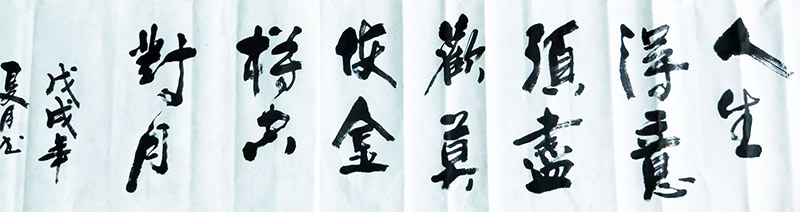 人生
得意
須盡
歡莫
使金
樽空
對月
戊戌年
夏月书